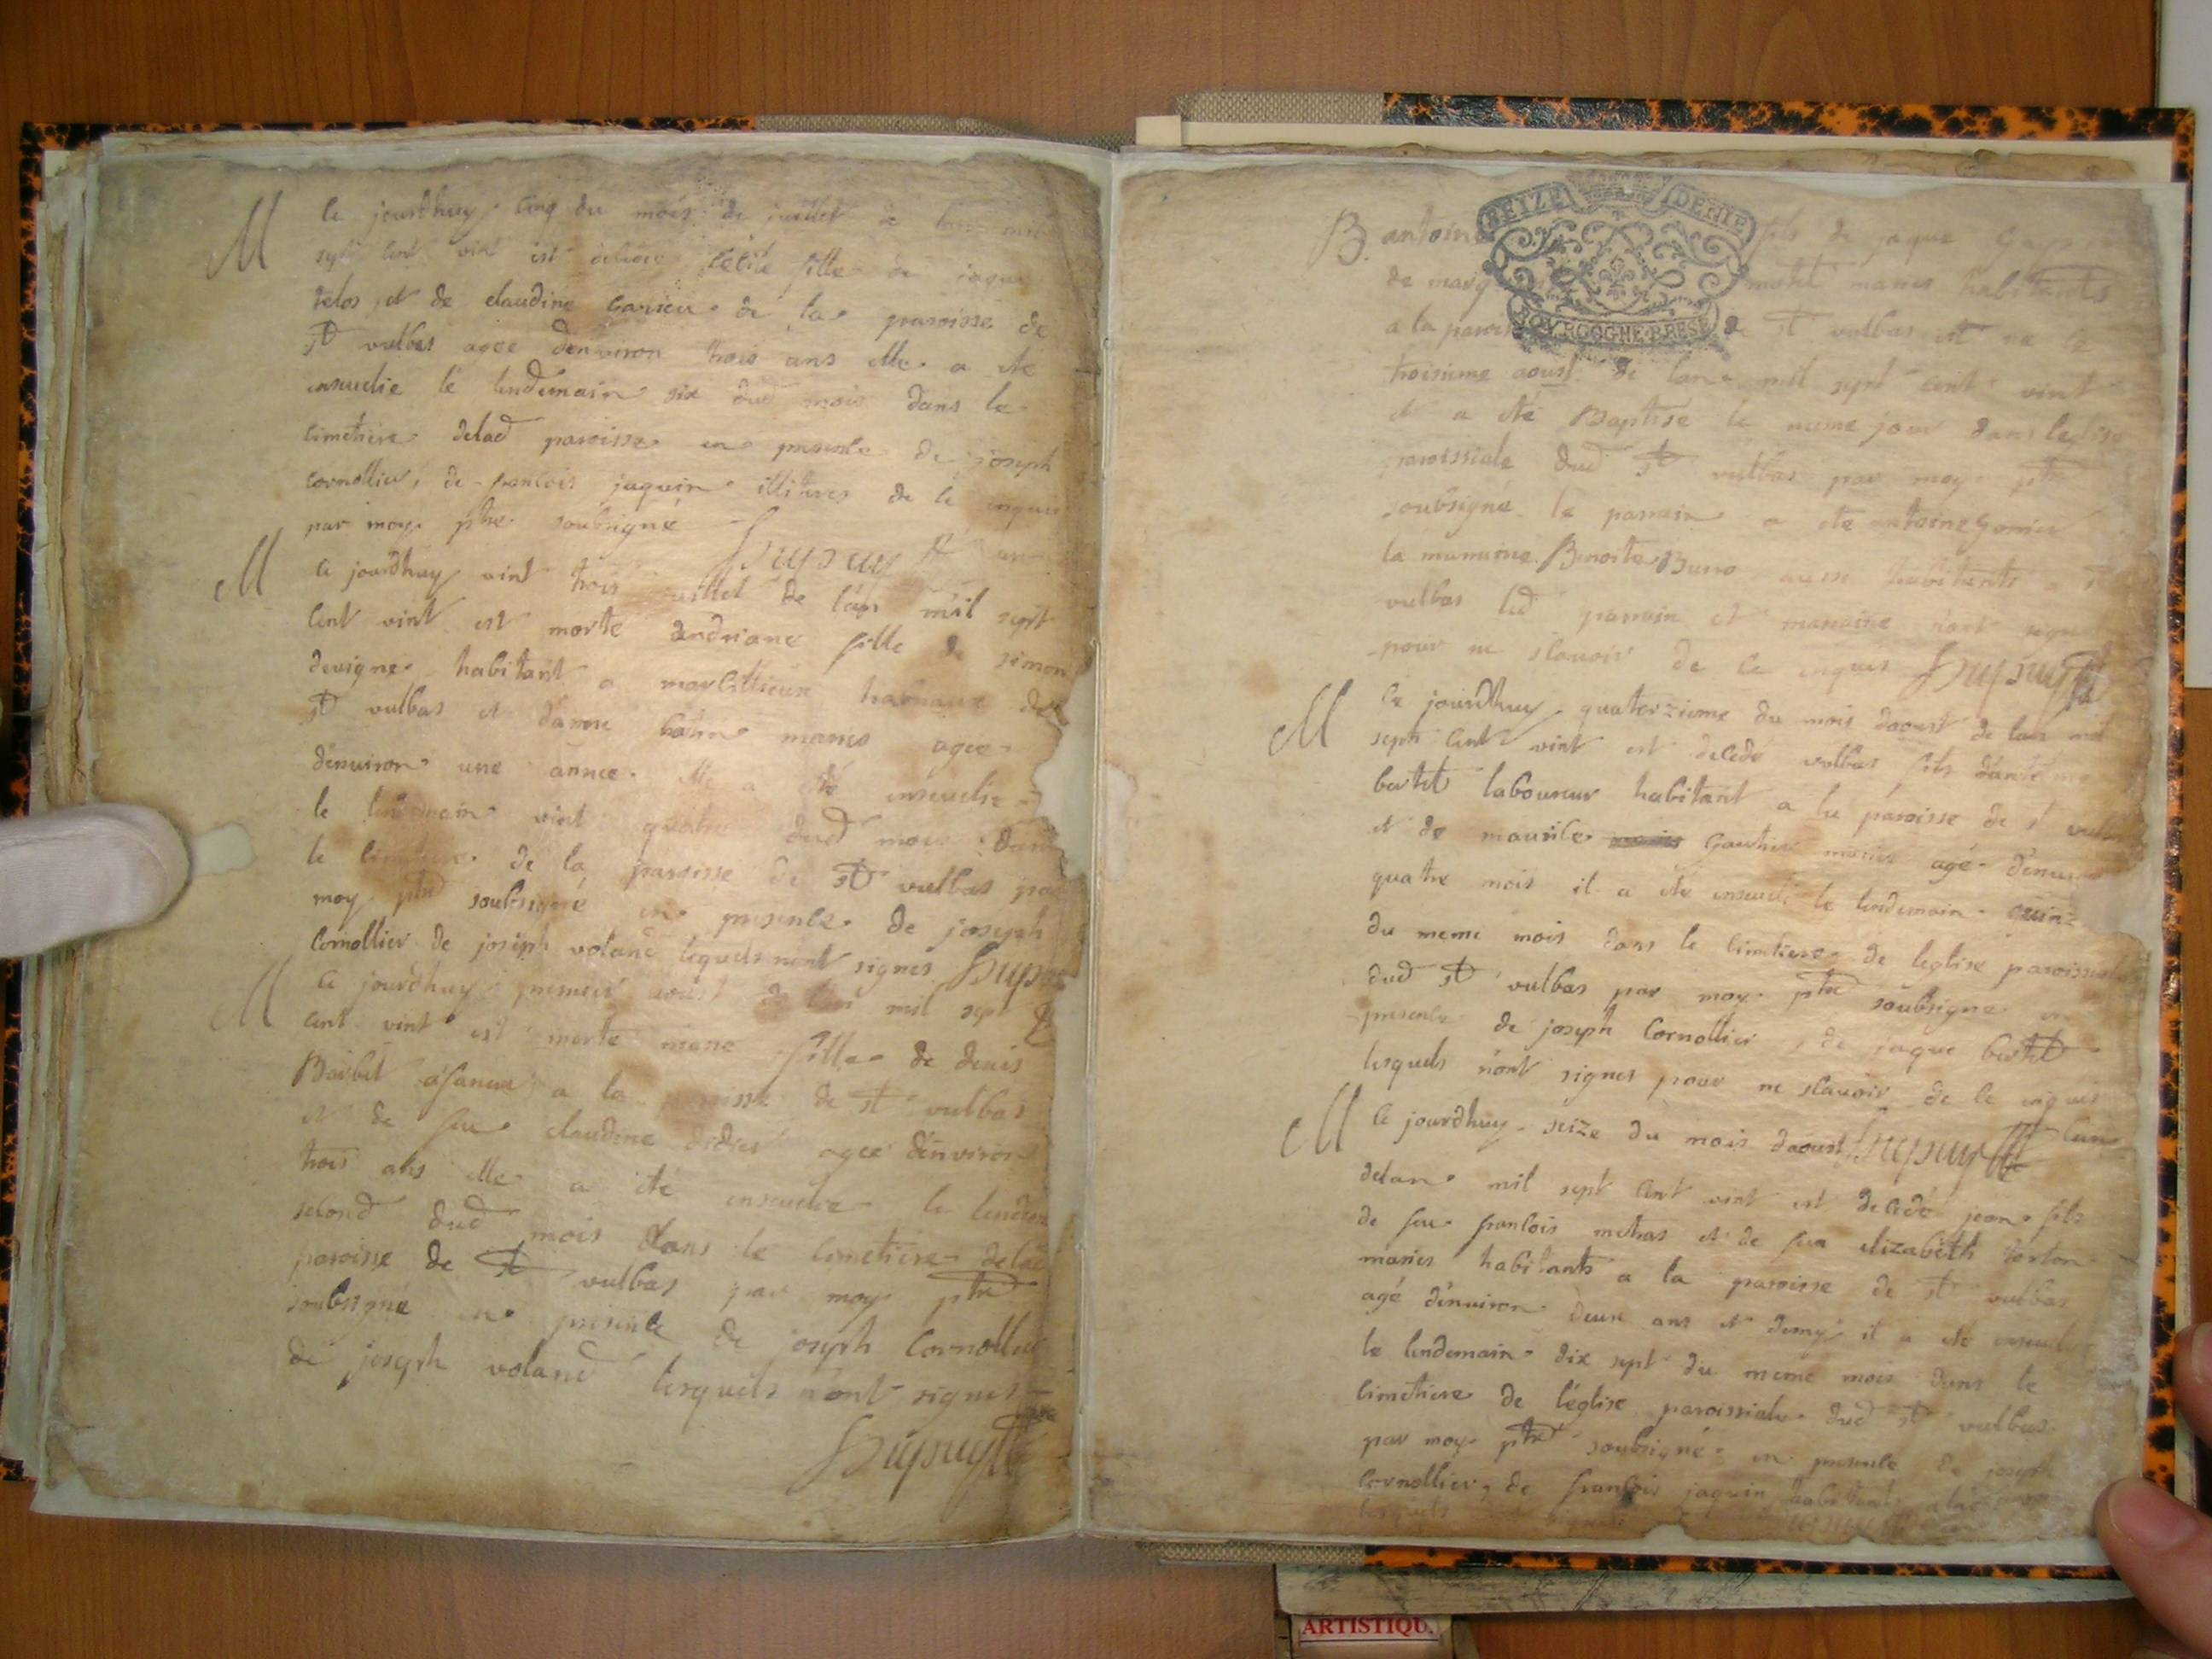 M ce jourdhuy cinq du mois de juillet de lan mil
sept cent vint est decedée fille de jaque
telos et de claudine de la paroisse de
st vulbas agee denviron trois ans elle a ete
ensuelie le lendemain six dud mois dans le
cimetiere delad paroisse en presence de joseph
cornollier, de francois jaquin illiteres de ce enquis
par moy ptre soubsigné Dupuy
M ce jourdhuy vint trois juillet de lan mil sept
cent vint est morte andriane fille de simon
devigne habitant a marcillieux hameaux de
st vulbas et danne mariés agee
d'enuiron une année elle a été ensuelie
le lendemain vint quatre dud mois dans
le cimetiere de la paroisse de st vulbas par
moy ptre soubsigné en presence de joseph
Cornollier de joseph voland lesquels nont signés Dupuy
M ce jourdhuy premier aoust de lan mil sept
cent vint est morte fille de denis
Barbet a la paroisse de st vulbas
et de feue claudine didier agee d'environ
trois ans elle a été ensuelie le lendem
second dud mois dans le cimetiere delad
paroisse de st vulbas par moy ptre
soubsigné en presence de joseph Cornollier
de joseph voland lesquels n'ont signés
Dupuy ptre
SEIZE DENIE
BOURGOGNE BRESE
B. antoine fils de jaque
de marg mariés habitants
a la paroisse de st vulbas est né le
troisieme aoust de lan mil sept cent vint
et a été Baptisé le meme jour dans leglise
paroissiale dud st vulbas par moy ptre
soubsigné le parrain a ete antoine
la marraine Benoite aussi habitants a st
vulbas led parrain et marraine n'ont signé
pour ne scavoir de ce enquis Dupuy ptre
M Ce jourdhuy quatorzieme du mois daoust de lan mil
sept cent vint est decedé vulbas fils
bertet laboureur habitant a la paroisse de st vulbas
et de Gautier mariés agé d'enuiron
quatre mois il a été ensueli le lendemain quinz
du meme mois dans le cimetiere de leglise paroissiale
dud st vulbas par moy ptre soubsigné en
presence de joseph Cornollier, de jaque bertet
lesquels n'ont signes pour ne scavoir de ce enquis
M Ce jourdhuy seize du mois daoust Dupuy ptre
delan mil sept cent vint est decedé jean fils
de feu francois et de feue elizabeth
mariés habitants a la paroisse de st vulbas
agé d'enuiron deux ans et demy il a ete ensueli
le lendemain dix sept du meme mois dans le
cimetiere de l'église paroissiale dud st vulbas
par moy ptre soubsigné en presence de joseph
Cornollier, de francois jaquin habitants
lesquels
ARTISTIQU.